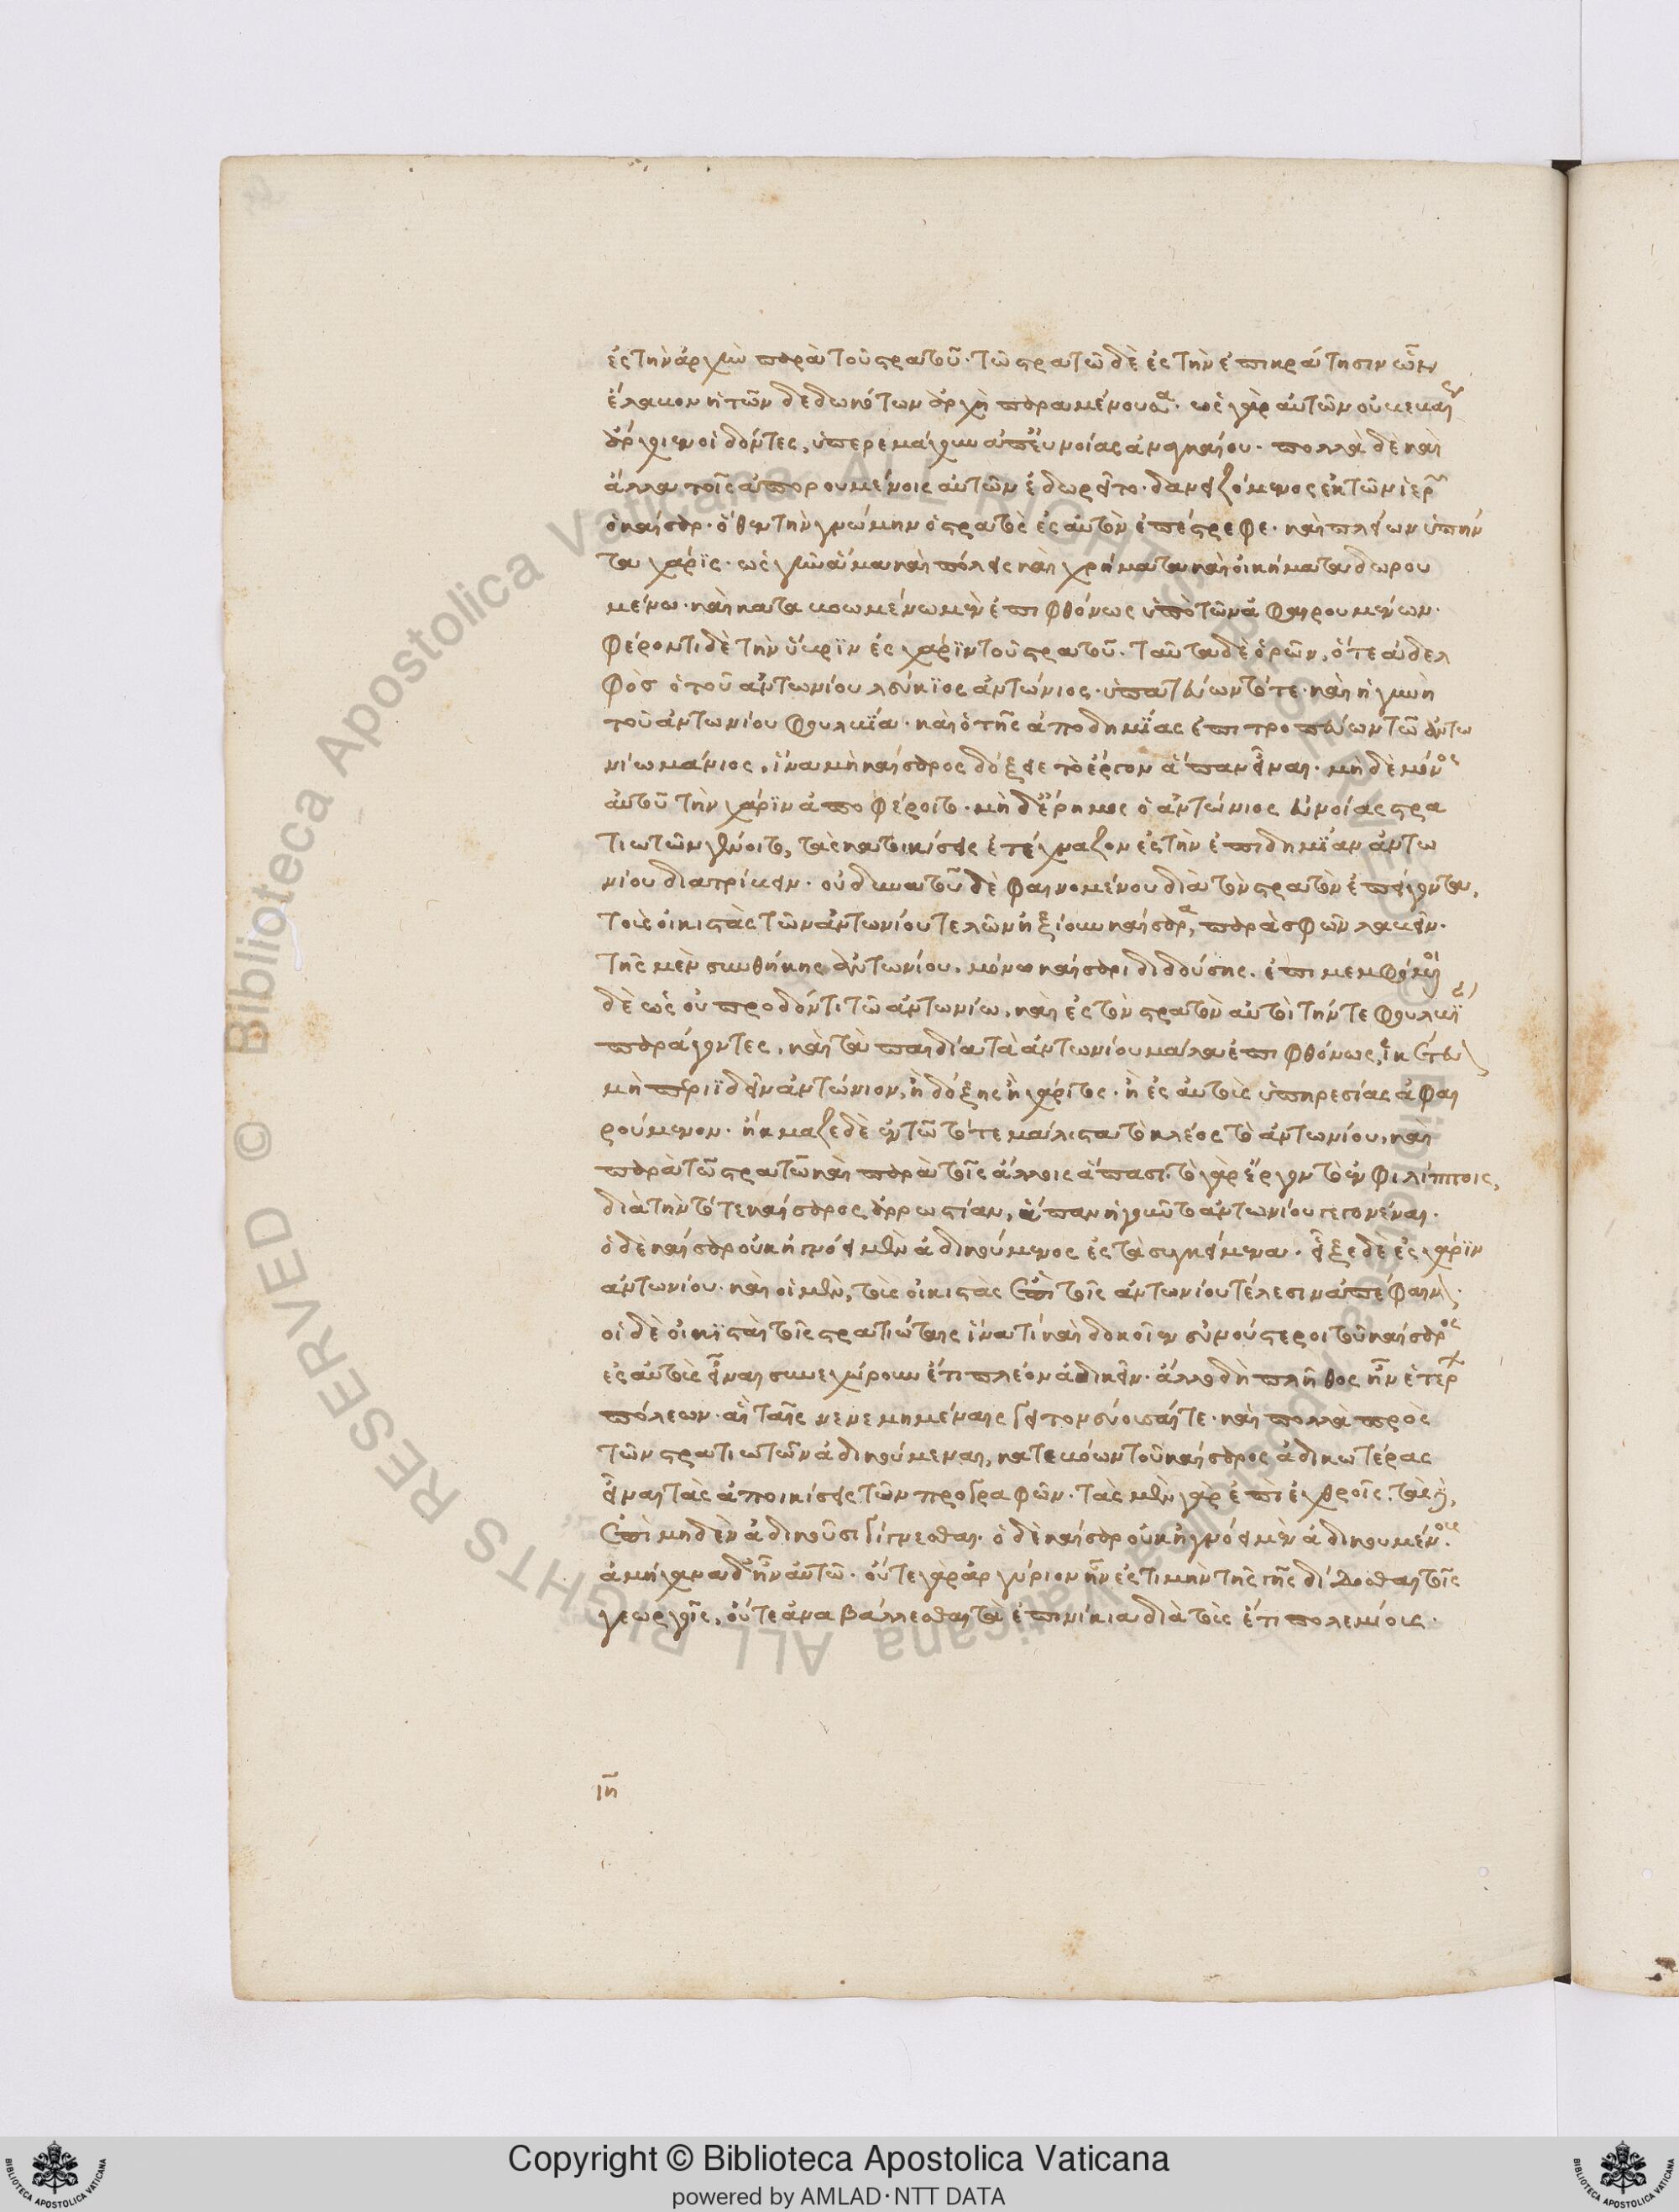 ἐς τὴν ἀρχὴν παρὰ τοῦ στρατοῦ· τῷ στρατῷ δὲ ἐς τὴν ἐπικράτησιν ὧν
ἔλαβον ἡ τῶν δεδωκότων ἀρχὴ παραμένουσα· ὡς γὰρ αὐτῶν οὐ βεβαί
ἀρχ οἱ δόντες, ὑπερεμάχουν ἀπ' εὐνοίας ἀναγκαίου· πολλὰ δὲ καὶ
ἄλλα τοῖς ἀπορουμένοις αὐτῶν ἐδωρεῖτο· δανειζόμενος ἐκ τῶν ἱερῶν
ὁ καίσαρ· ὅθεν τὴν γνώμην ὁ στρατὸς ἐς αὐτὸν ἐπέστρεφε· καὶ πλείων ὑπήν
τα χάρϊς· ὡς γῆν ἅμα καὶ πόλεις καὶ χρήματα καὶ οἰκήματα δωρου
μένω· καὶ καταβοωμένω μὲν ἐπιφθόνως ὑπὸ τῶν ἀφαιρουμένων·
φέροντι δὲ τὴν ὕβρϊν ἐς χάρϊν τοῦ στρατοῦ· ταῦτα δὲ ὁρῶν, ὅ τε ἀδελ
φὸσ ὁ τοῦ ἀντωνίου λεύκϊος ἀντώνιος· ὑπατεύων τότε· καὶ ἡ γυνὴ
τοῦ ἀντωνίου φουλβΐα· καὶ ὁ τῆς ἀποδημΐας ἐπιτροπεύων τῶ ἀντω
νίω μάνιος, ἵνα μὴ καίσαρος δόξειε τὸ ἔργον ἅπαν εἶναι· μὴ δὲ μόνος
αὐτοῦ τὴν χάρϊν ἀποφέροιτο· μὴ δ' ἔρημος ὁ ἀντώνιος εὐνοίας στρα
τιωτῶν γένοιτο, τὰς κατοικίσεις ἐτέχναζον ἐς τὴν ἐπιδημΐαν ἀντω
νίου διατρίβειν· οὐ δυνατοῦ δὲ φαινομένου διὰ τὸν στρατὸν ἐπείγοντα,
τοὺς οἰκιστὰς τῶν ἀντωνίου τελῶν ἠξίουν καίσαρα, παρὰ σφῶν λαβεῖν·
τῆς μὲν συνθήκης ἀντωνίου, μόνω καίσαρι διδούσης. ἐπιμεμφόμενοι
δὲ ὡς οὐ προδόντι τῶ ἀντωνίω, καὶ ἐς τὸν στρατὸν αὐτοὶ τήν τε φουλβΐαν
παράγοντες, καὶ τὰ παιδία τὰ ἀντωνίου μάλα ἐπιφθόνως, ἱκέτευον
μὴ περιϊδεῖν ἀντώνιον, ἢ δόξης ἢ χάριτος· ἢ ἐς αὐτοὺς ὑπηρεσίας ἀφαι
ρούμενον· ἤκμαζε δὲ ἐν τῶ τότε μάλιστα τὸ κλέος τὸ ἀντωνίου, καὶ
παρὰ τῶ στρατῶ καὶ παρὰ τοῖς ἄλλοις ἅπασι· τὸ γὰρ ἔργον τὸ ἐν φιλίπποις,
διὰ τὴν τότε καίσαρος ἀρρωστίαν, ἅπαν ἡγοῦντο ἀντωνίου γεγονέναι·
ὁ δὲ καίσαρ οὐκ ἠγνόει μὲν ἀδικούμενος ἐς τὰ συγκείμενα· εἶξε δὲ ἐς χάρϊν
ἀντωνίου· καὶ οἱ μὲν, τοὺς οἰκιστὰς ἐπὶ τοῖς ἀντωνίου τέλεσιν ἀπέφαινον·
οἱ δὲ οἰκϊσταὶ τοῖς στρατιώταις ἵνα τί καὶ δοκοῖεν εὐνούστεροι τοῦ καίσαρος
ἐς αὐτοὺς εἶναι συνεχώρουν ἔτι πλέον ἀδικεῖν· ἄλλο δὴ πλῆθος ἦν ἑτέρων
πόλεων· αἳ ταῖς νενεμημέναις γειτονεύουσαί τε· καὶ πολλὰ πρὸς
τῶν στρατιωτῶν ἀδικούμεναι, κατεβόων τοῦ καίσαρος ἀδικωτέρας
εἶναι τὰς ἀποικίσεις τῶν προγραφῶν· τὰς μὲν γὰρ ἐπ' ἐχθροῖς, τὰς δὲ,
ἐπὶ μηδὲν ἀδικοῦσι γίγνεσθαι· ὁ δὲ καίσαρ οὐκ ἠγνόει μὲν ἀδικουμένους·
ἀμήχανα δ' ἦν αὐτῶ· οὔτε γὰρ ἀργύριον ἦν ἐς τιμὴν τῆς γῆς δίδοσθαι τοῖς
γεωργοῖς, οὔτε ἀναβάλλεσθαι τὰ ἐπινίκια διὰ τοὺς ἔτι πολεμίους·
ιη